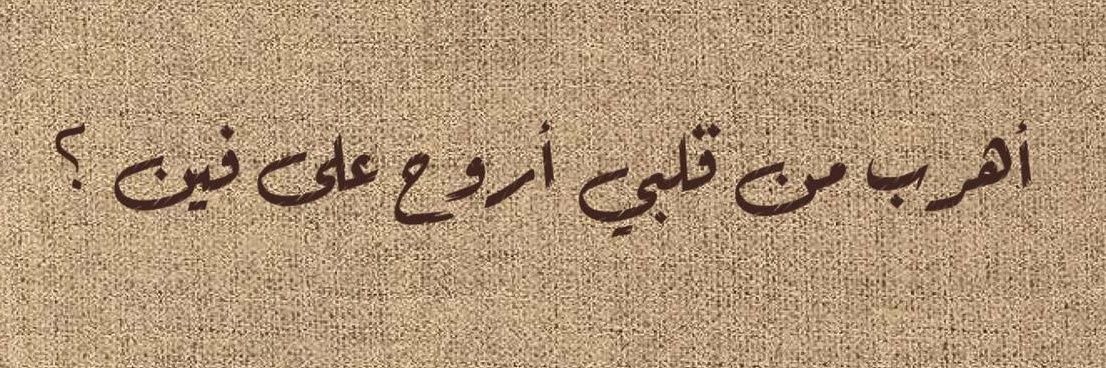 أهرب من قلبي أروح على فين ؟